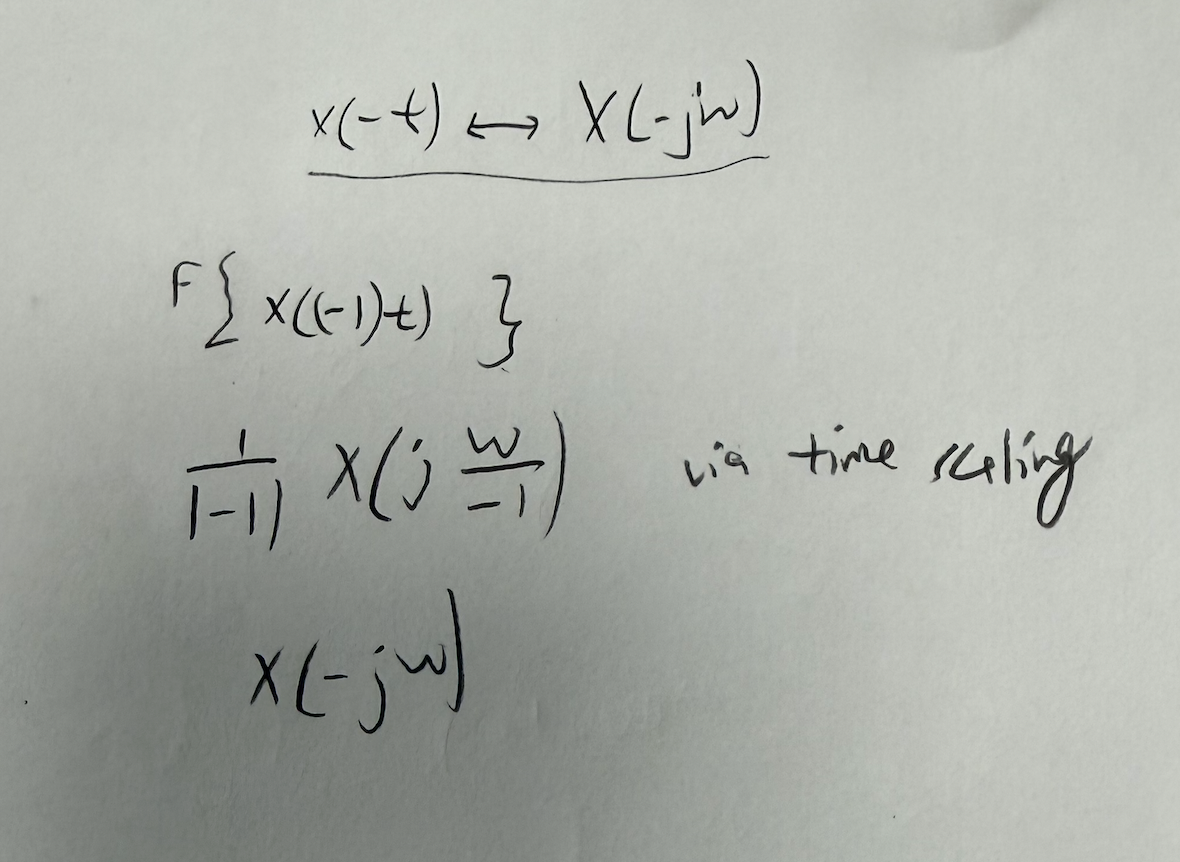 x(-t) ↔ X(-jw)
F{ x((-1)t) }
1/|-1| X(j w/-1) via time scaling
X(-jw)